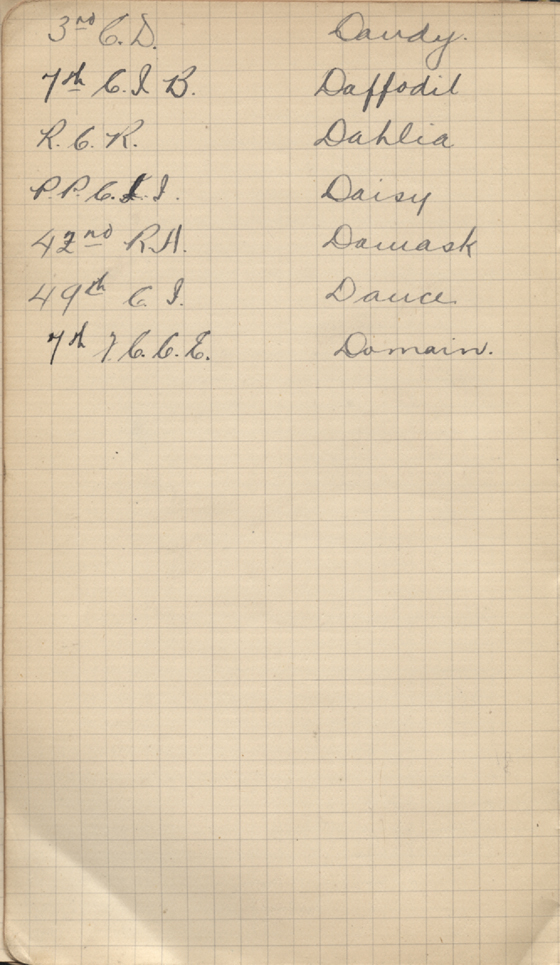 3rd C.D. Dandy.
7th C.I.B. Daffodil
R.C.R. Dahlia
P.P.C.L.I. Daisy
42nd R.H. Damask
49th C.I. Dance
7th F.C.C.E. Domain.